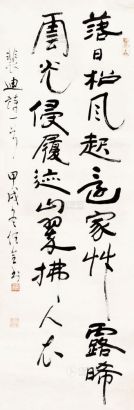 落日松风起还家草露晞
云光侵履迹山翠拂人衣
裴迪诗一首甲戌冬